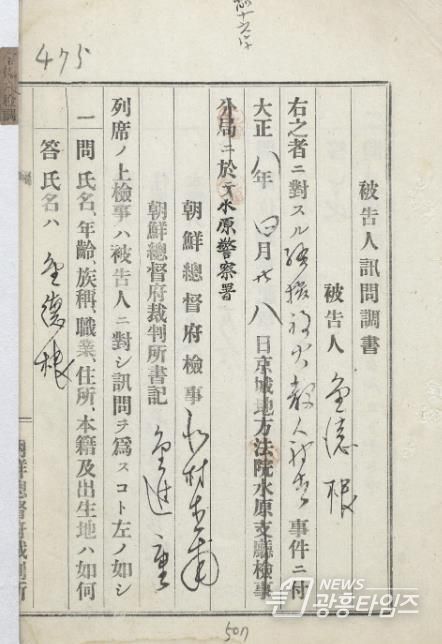 475
被告人訊問調書
被告人 金德根
右之者ニ對スル 放火 事件ニ付
大正 八年 四月 廿八 日京城地方法院水原支廳檢事
分局ニ於テ 水原警察署
朝鮮總督府檢事
朝鮮總督府裁判所書記
列席ノ上檢事ハ被告人ニ對シ訊問ヲ爲スコト左ノ如シ
一 問 氏名、年齡、族稱、職業、住所、本籍及出生地ハ如何
答 氏名ハ 金德根
朝鮮總督府裁判所
507
NEWS
광흥타임즈